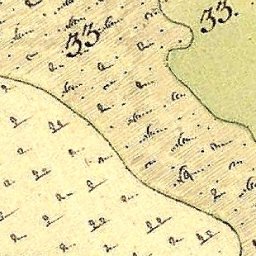 33
33.